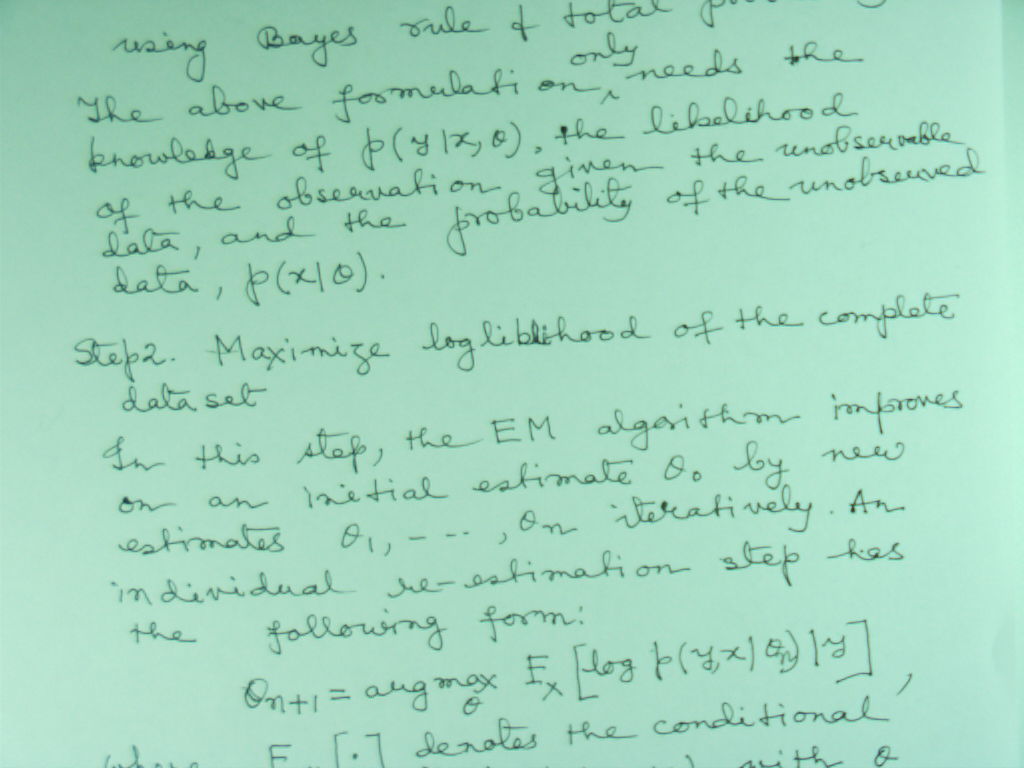 using Bayes rule & total
The above formulation only needs the
knowledge of p(y|x,θ), the likelihood
of the observation given the unobservable
data, and the probability of the unobserved
data, p(x|θ).
Step2. Maximize log likelihood of the complete
data set
In this step, the EM algorithm improves
on an initial estimate θ₀ by new
estimates θ₁, ---, θn iteratively. An
individual re-estimation step has
the following form:
θn+1 = arg max θ Ex [log p(y,x|θn)|y],
(where E [.] denotes the conditional
with θ